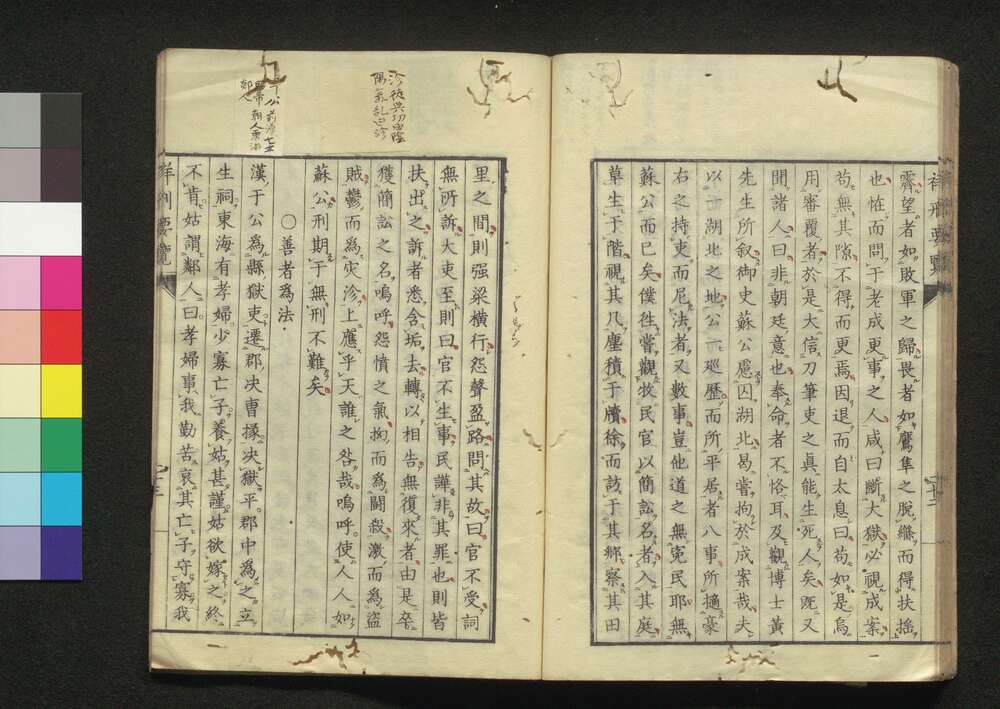 霽望者如敗軍之歸畏者如鷹隼之脫縧而得扶搖
也恠而問于老成更事之人咸曰斷大獄必視成案
苟無其隙不得而更焉因退而自太息曰苟如是烏
用審覆者於是大信刀筆吏之眞能生死人矣旣又
聞諸人曰非朝廷意也奉命者不恪耳及觀博士黃
先生所叙御史蘇公慮囚湖北曷嘗拘於成案哉夫
以湖北之地公一巡歷而所平居者八事所擿豪
右之持吏而尼法者又數事豈他道之無寃民耶無
蘇公而已矣僕徃嘗觀牧民官以簡訟名者入其庭
草生于階視其几塵積于牘徐而訪于其鄕察其田
里之間則强梁橫行怨聲盈路問其故曰官不受詞
無所訴大吏至則曰官不生事民譁非其罪也則皆
扶出之訴者悉含垢去轉以相告無復來者由是卒
獲簡訟之名嗚呼怨憤之氣拘而爲鬪殺激而爲盜
賊鬱而爲灾沴上應乎天誰之咎哉嗚呼使人人如
蘇公刑期于無刑不難矣
○善者爲法
漢于公爲縣獄吏遷郡决曹掾决獄平郡中為之立
生祠東海有孝婦少寡亡子養姑甚謹姑欲嫁之終
不肯姑謂鄰人曰孝婦事我勤苦哀其亡子守寡我
祥刑要覽